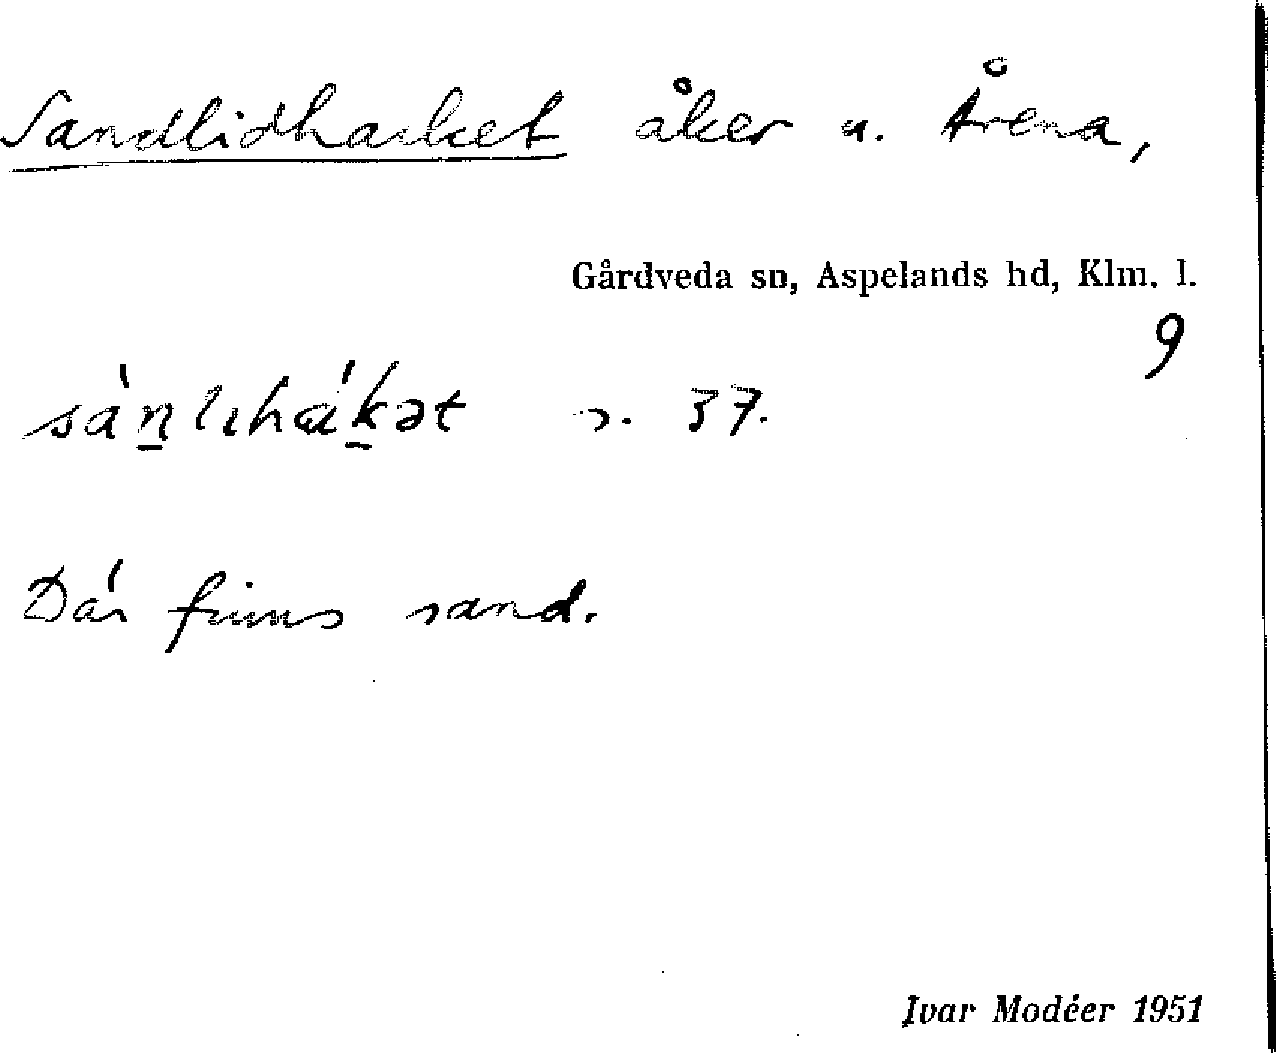 Sandlidhacket åker u. Årena,
Gårdveda sn, Aspelands hd, Klm. l.
9
s. 37.
Där finns sand.
Ivar Modéer 1951